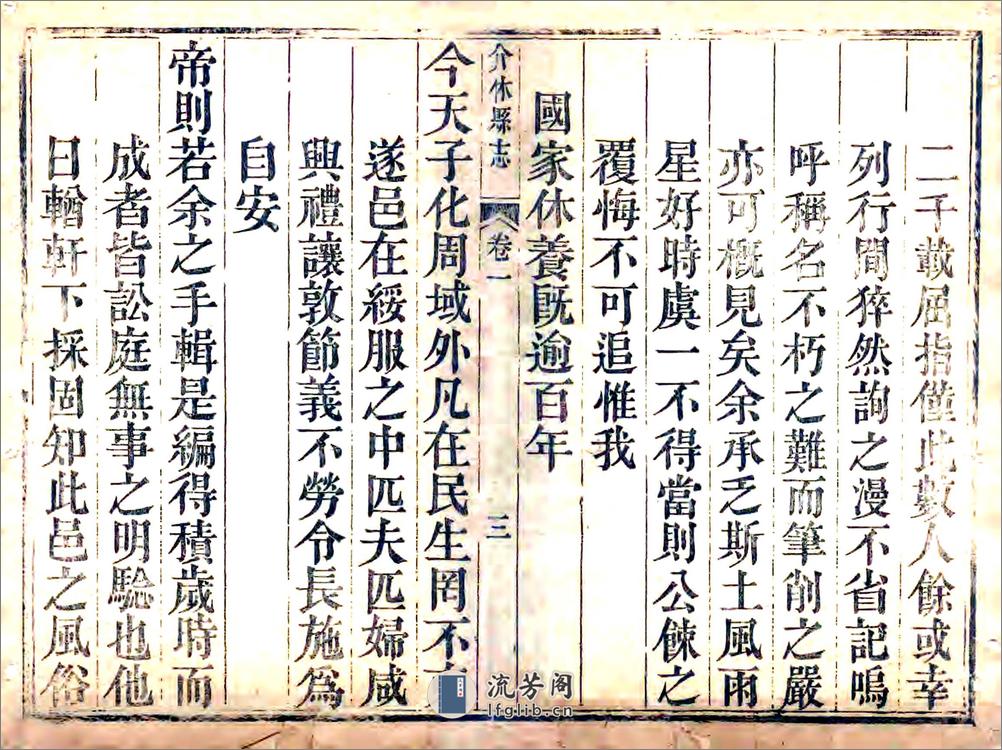 二千載屈指僅此數人餘或幸
列行間猝然詢之漫不省記嗚
呼稱名不朽之難而筆削之嚴
亦可概見矣余承乏斯土風雨
星好時虞一不得當則公餗之
覆悔不可追惟我
國家休養旣逾百年
介休縣志 卷一 三
今天子化周域外凡在民生罔不
遂邑在綏服之中匹夫匹婦咸
興禮讓敦節義不勞令長施爲
自安
帝則若余之手輯是編得積歲時而
成者皆訟庭無事之明驗也他
日輶軒下採固知此邑之風俗
流芳阁
lfglib.cn